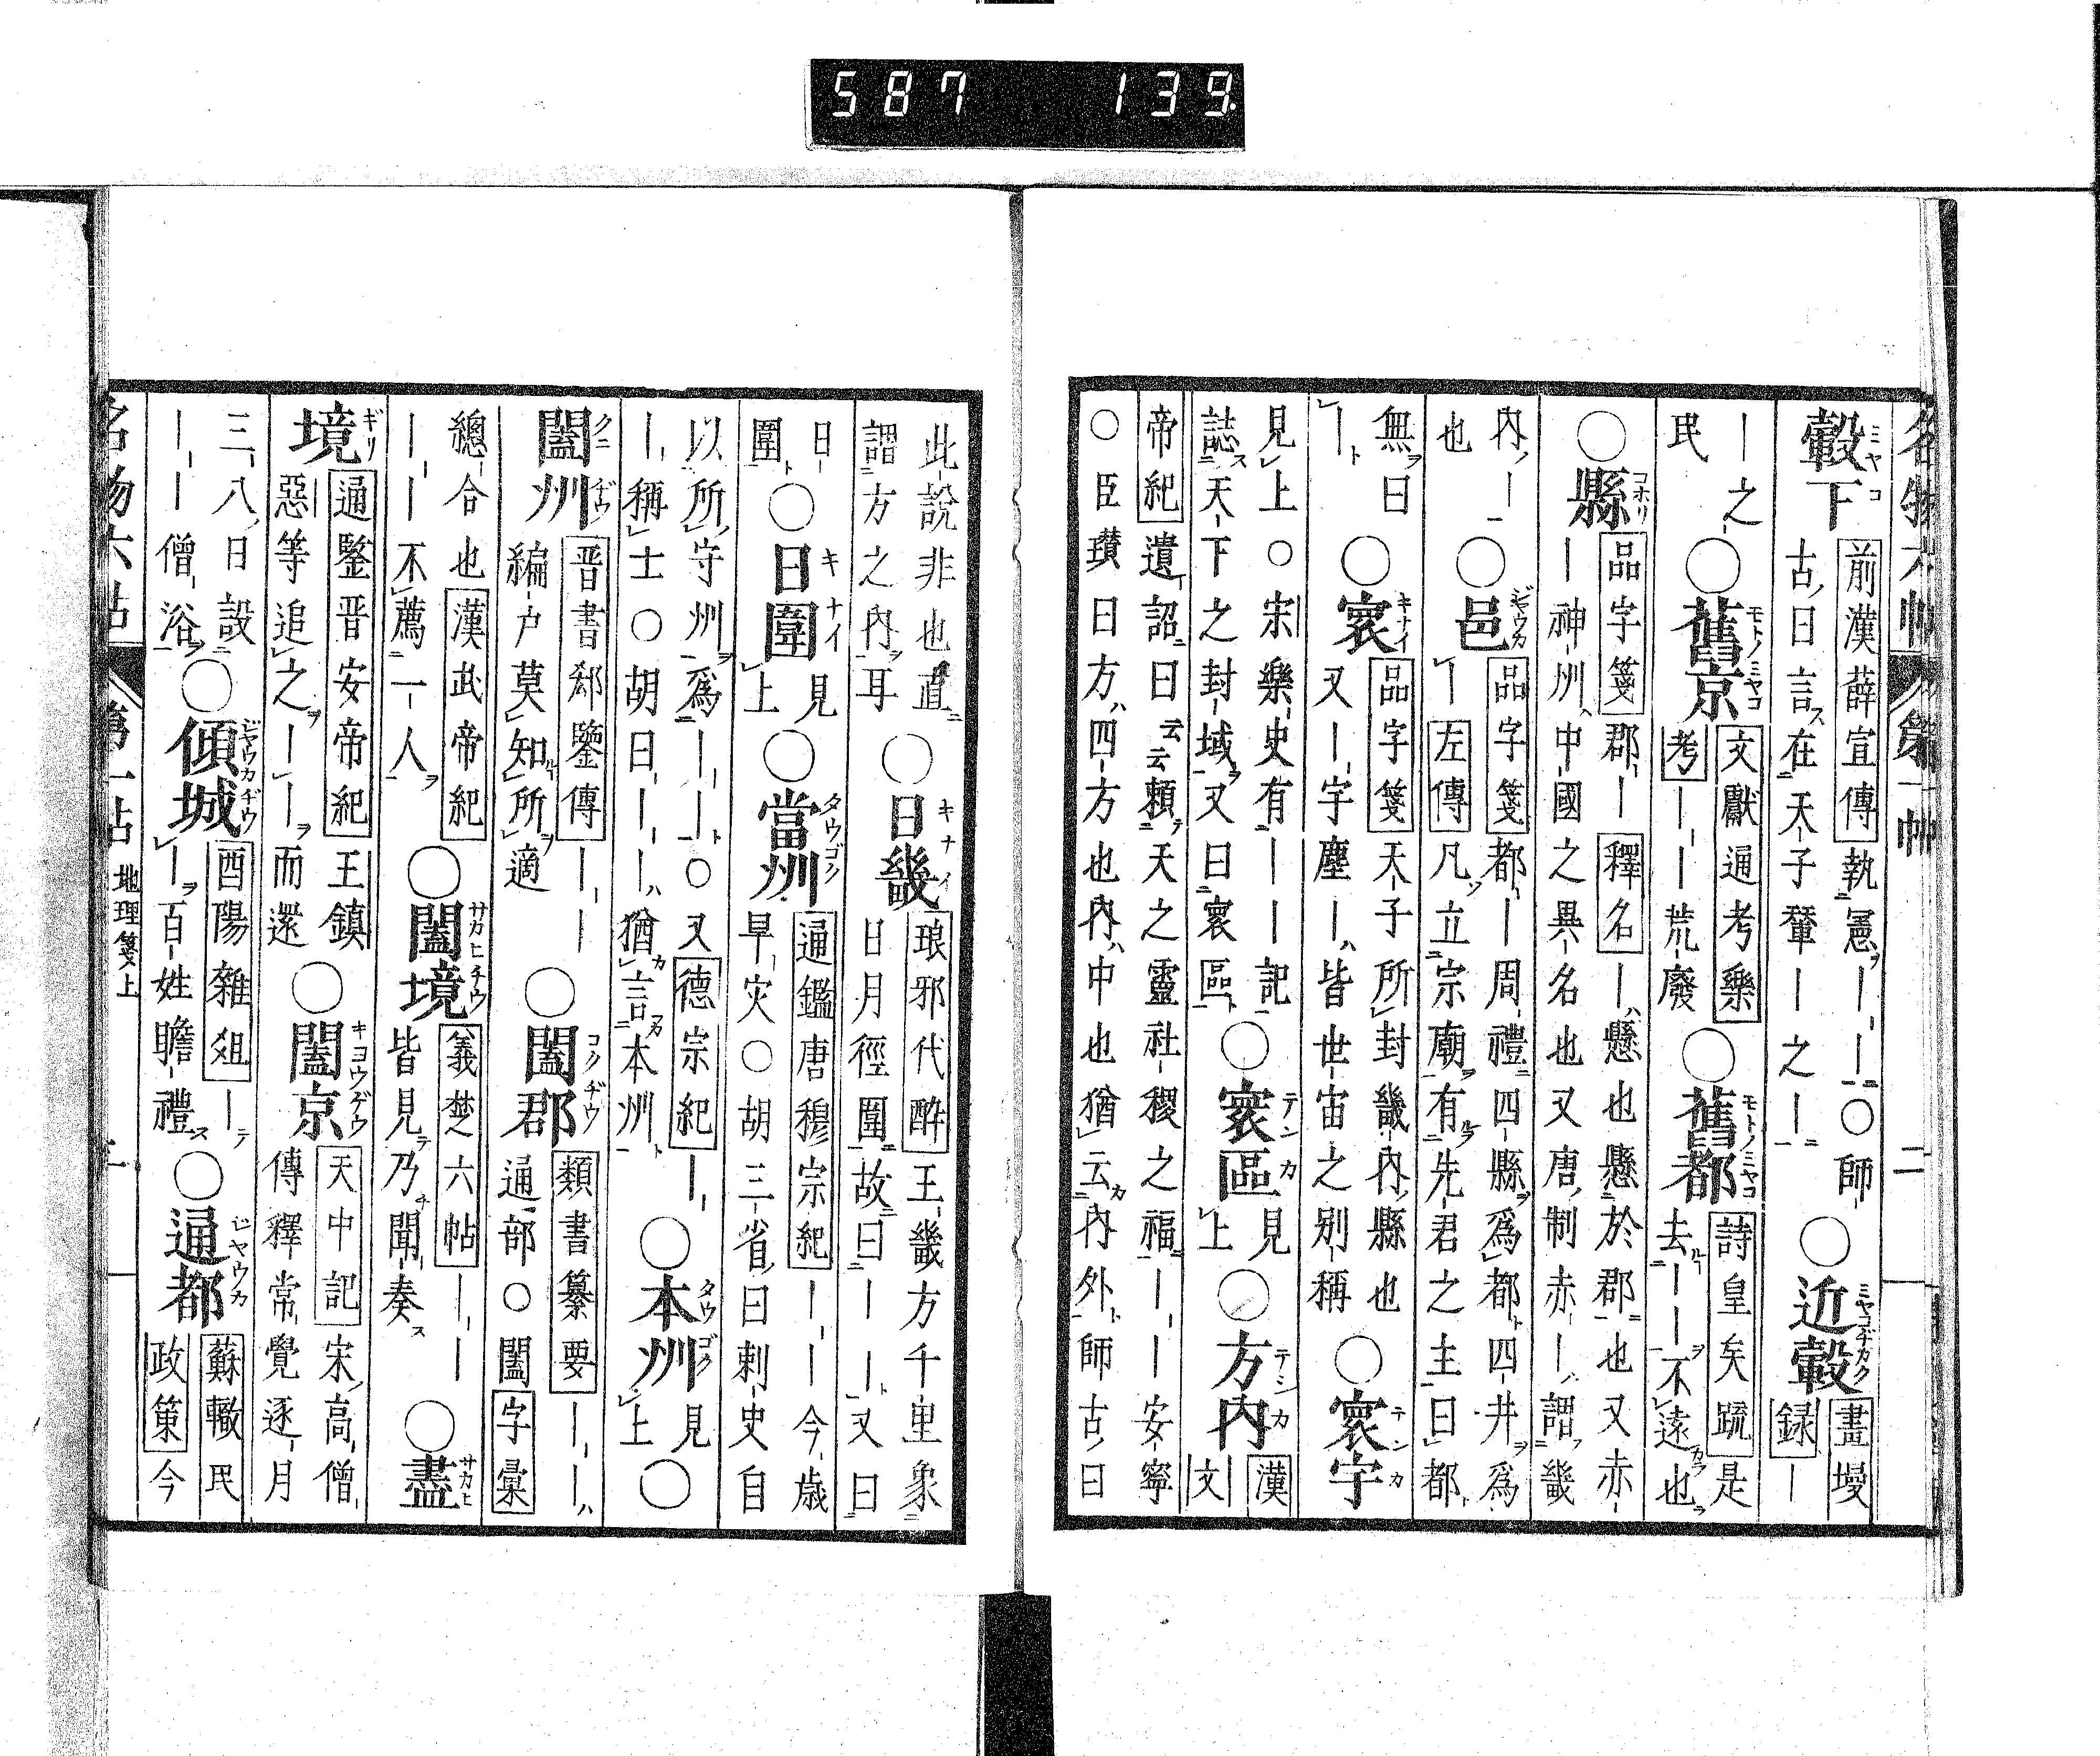 名物六帖 第一帖 二
轂下
前漢薛宣傳執憲――○師
古曰言在天子輦―之―
○近轂
畫墁
録―
―之
民
○舊京
文獻通考樂
考――荒廢
○舊都
詩皇矣疏是
去――不遠也
○縣
品字箋郡―釋名―懸也懸於郡也又赤
―神州中國之異名也又唐制赤―謂畿
内―
也
○邑
品字箋都―周禮四縣爲都四井爲
―左傳凡立宗廟有先君之主曰都
無曰
―
○寰
品字箋天子所封畿内縣也
又―字塵―皆世宙之別稱
○寰宇
見上○宋樂史有――記
誌天下之封域又曰寰區
○寰區
見
上
○方内
漢
文
帝紀遺詔曰云云頼天之靈社稷之福――安寧
○臣瓚曰方四方也内中也猶云内外師古曰
此說非也直
謂方之内耳
○日畿
琅邪代醉王畿方千里象
日月徑圍故曰――又曰
日
圍
○日圍
見
上
○當州
通鑑唐穆宗紀――今歲
旱灾○胡三省曰刺史自
以所守州爲――○又德宗紀―
―稱士○胡曰――猶言本州
○本州
見
上
○
闔州
晋書郗鑒傳――
編戸莫知所適
○闔郡
類書纂要――
通部○闔字彙
總合也漢武帝紀
――不薦一人
○闔境
義楚六帖――
皆見乃聞奏
○盡
境
通鑒晋安帝紀王鎮
惡等追之――而還
○闔京
天中記宋高僧
傳釋常覺逐月
三八日設
――僧浴
○傾城
酉陽雜俎―
―百姓瞻禮
○通都
蘇轍民
政策今
名物六帖 第一帖 地理箋上
587 139